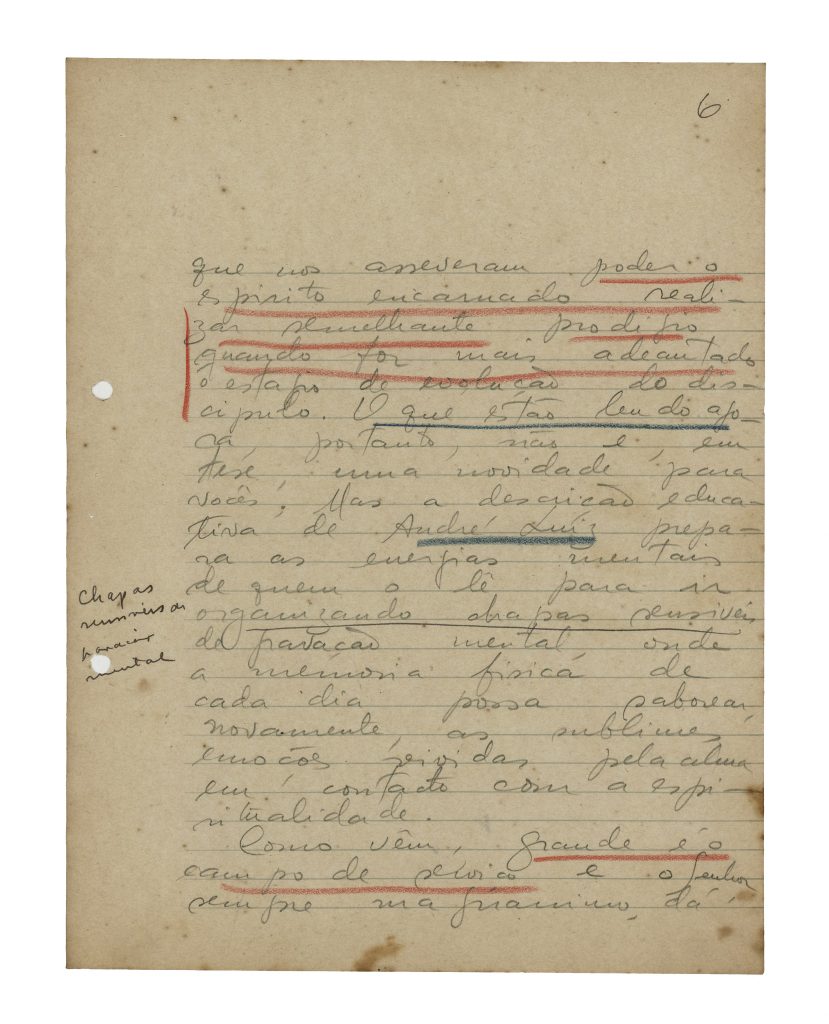 6
que nos asseveram poder o
espirito encarnado reali-
zar semelhante prodigio
quando for mais adeantado
o estagio de evolução do dis-
cipulo. O que estão lendo ago-
ra, portanto, não é, em
tese, uma novidade para
vocês. Mas a descrição educa-
tiva de André Luiz prepa-
ra as energias mentais
de quem o lê para ir
organizando chapas sensiveis
de gravação mental, onde
a memoria fisica de
cada dia possa saborear,
novamente, as sublimes
emoções vividas pela alma
em contacto com a espi-
ritualidade.
Como vêm, grande é o
campo de serviço e o Senhor
sempre magnanimo, dá
Chapas
mental